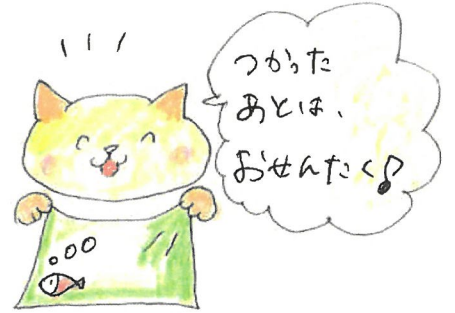 つかった
あとは、
おせんたく♪